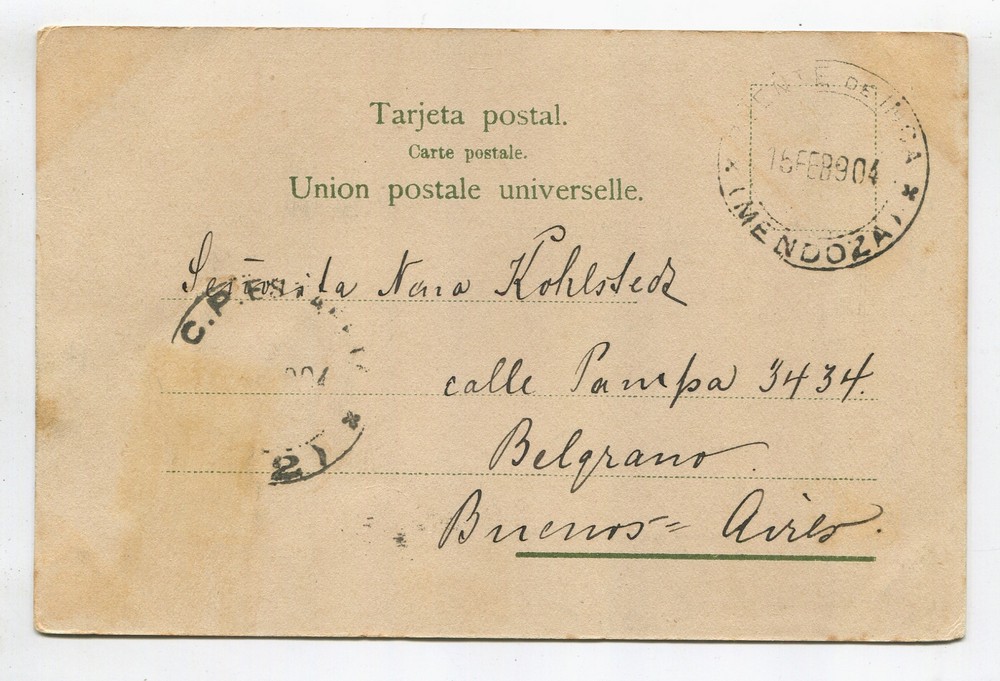 Tarjeta postal.
Carte postale.
Union postale universelle.
ENTE DE INCA
15 FEB 904
(MENDOZA)
Señorita Nora Kohlstedt
C.P.
904
2)
calle Pampa 3434.
Belgrano
Buenos=Aires.